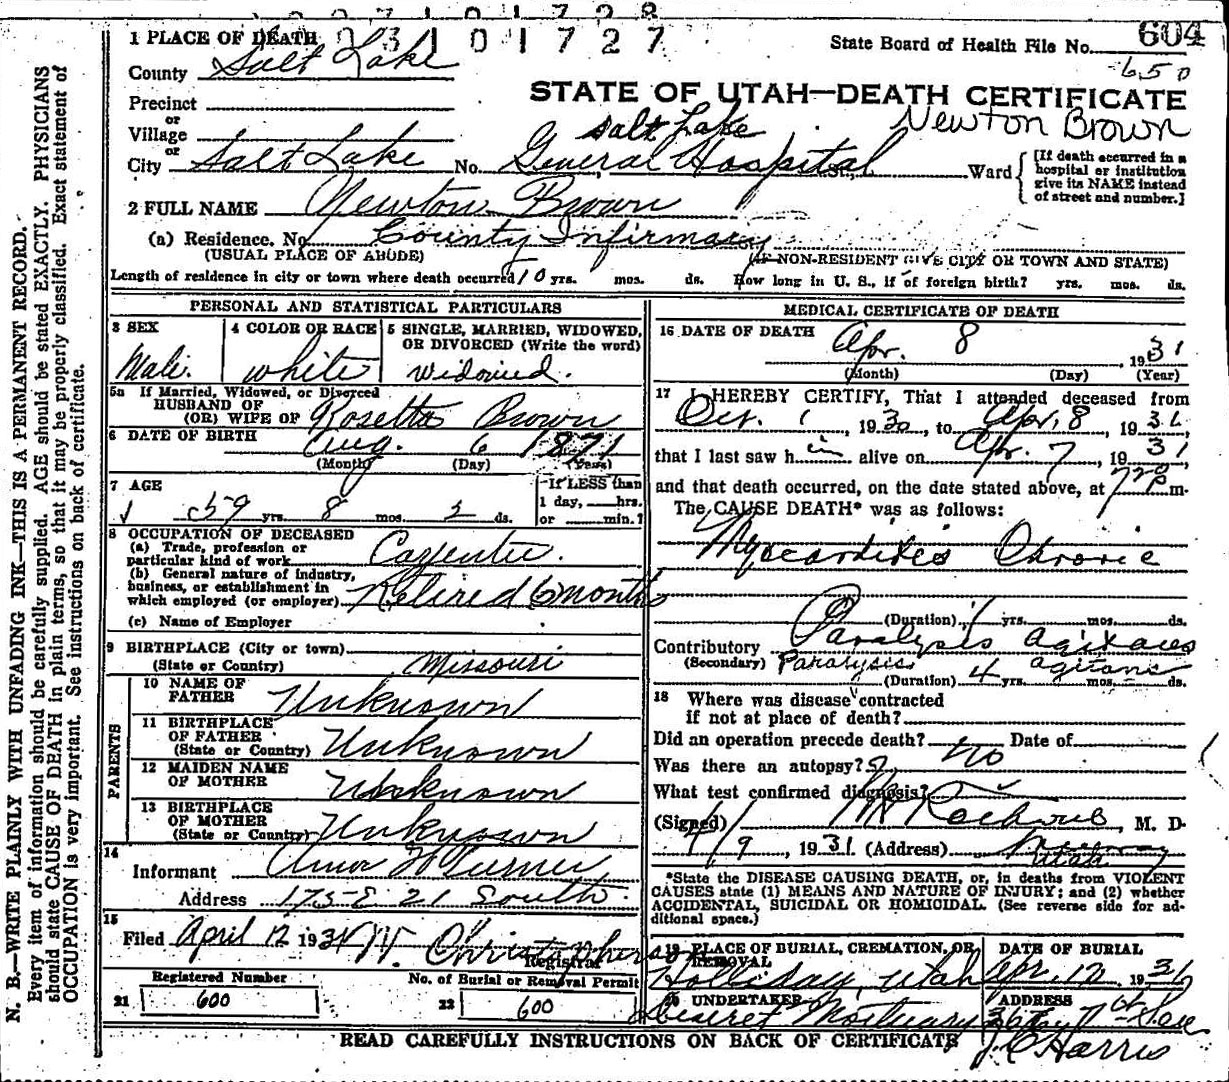 3101727
604
State Board of Health File No.
650
STATE OF UTAH—DEATH CERTIFICATE
Newton Brown
1 PLACE OF DEATH
County Salt Lake
Precinct
or
Village
or
City Salt Lake No. Salt Lake General Hospital St., Ward
[If death occurred in a
hospital or institution
give its NAME instead
of street and number.]
2 FULL NAME Newton Brown
(a) Residence. No. County Infirmary
(USUAL PLACE OF ABODE) (IF NON-RESIDENT GIVE CITY OR TOWN AND STATE)
Length of residence in city or town where death occurred 10 yrs. mos. ds. How long in U. S., if of foreign birth? yrs. mos. ds.
PERSONAL AND STATISTICAL PARTICULARS
3 SEX
Male.
4 COLOR OR RACE
white
5 SINGLE, MARRIED, WIDOWED,
OR DIVORCED (Write the word)
Widowed.
5a If Married, Widowed, or Divorced
HUSBAND OF
(OR) WIFE OF Rosetta Brown
6 DATE OF BIRTH Aug. 6 1871
(Month) (Day) (Year)
7 AGE
59 yrs. 8 mos. 2 ds.
If LESS than
1 day, hrs.
or min.?
8 OCCUPATION OF DECEASED
(a) Trade, profession or
particular kind of work Carpenter.
(b) General nature of industry,
business, or establishment in
which employed (or employer) Retired 6 months
(c) Name of Employer
9 BIRTHPLACE (City or town)
(State or Country) Missouri
PARENTS
10 NAME OF
FATHER Unknown
11 BIRTHPLACE
OF FATHER
(State or Country) Unknown
12 MAIDEN NAME
OF MOTHER Unknown
13 BIRTHPLACE
OF MOTHER
(State or Country) Unknown
14
Informant
Address 175 E 21 South.
15
Filed April 12 1931 W. Christopherson
Registrar
Registered Number
21 600
No. of Burial or Removal Permit
22 600
MEDICAL CERTIFICATE OF DEATH
16 DATE OF DEATH Apr. 8 1931
(Month) (Day) (Year)
17 I HEREBY CERTIFY, That I attended deceased from
Oct. 1, 1930, to Apr. 8, 1931,
that I last saw h im alive on Apr. 7, 1931
and that death occurred, on the date stated above, at m.
The CAUSE DEATH* was as follows:
Myocarditis Chronic
(Duration) 1 yrs. mos. ds.
Contributory Paralysis agitans
(Secondary) Paralysis agitans
(Duration) 4 yrs. mos. ds.
18 Where was disease contracted
if not at place of death?
Did an operation precede death? no Date of
Was there an autopsy?
What test confirmed diagnosis?
(Signed) M. D.
4/9, 1931. (Address) Utah
*State the DISEASE CAUSING DEATH, or, in deaths from VIOLENT
CAUSES state (1) MEANS AND NATURE OF INJURY; and (2) whether
ACCIDENTAL, SUICIDAL OR HOMICIDAL. (See reverse side for ad-
ditional space.)
19 PLACE OF BURIAL, CREMATION, OR
REMOVAL
Holliday, Utah
DATE OF BURIAL
Apr. 12 1931
20 UNDERTAKER
Deseret Mortuary
ADDRESS
J C Harris
READ CAREFULLY INSTRUCTIONS ON BACK OF CERTIFICATE
N. B.—WRITE PLAINLY WITH UNFADING INK—THIS IS A PERMANENT RECORD.
Every item of information should be carefully supplied. AGE should be stated EXACTLY. PHYSICIANS
should state CAUSE OF DEATH in plain terms, so that it may be properly classified. Exact statement of
OCCUPATION is very important. See instructions on back of certificate.